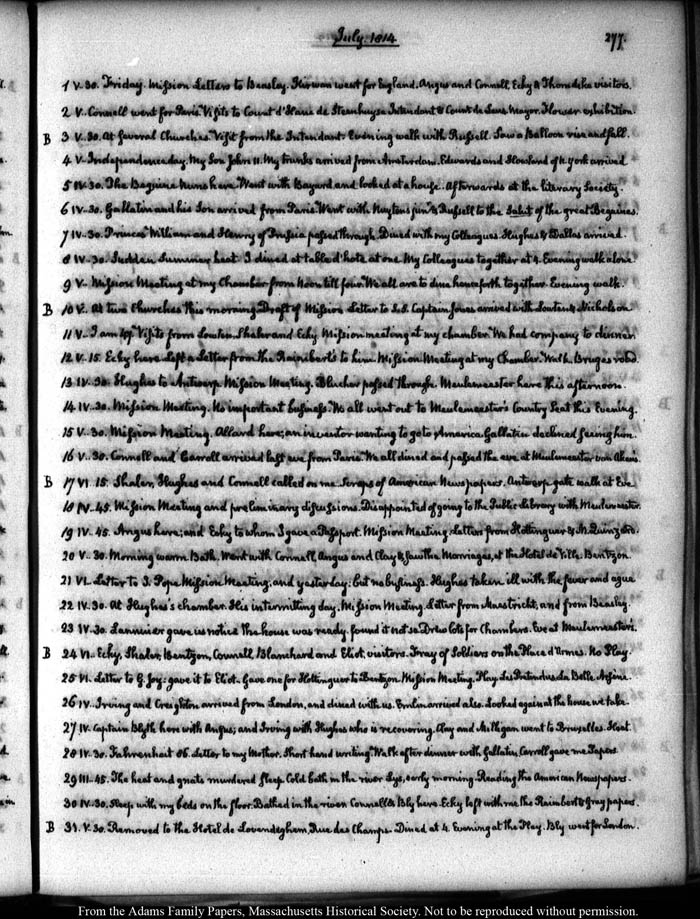 July. 1814
277.
1 V. 30. Friday. Mission Letters to Beasley. Kirwan went for England. Angus and Connell, Ecky & Thorndike visitors.
2 V. Connell went for Paris. Visits to Count d'Hane de Steenhuyse Intendant & Count de Lens. Mayor. Flower exhibition.
B 3 V. 30. At several Churches. Visit from the Intendant. Evening walk with Russell. Saw a Balloon rise and fall.
4 V. Independence day. My Son John 11. My trunks arrived from Amsterdam. Edwards and Howland of N. York arrived
5 IV. 30. The Beguine Nuns here. Went with Bayard and looked at a house. Afterwards at the literary Society.
6 IV. 30. Gallatin and his Son arrived from Paris. Went with Huytens junr. & Russell to the Salut of the great Beguines.
7 IV. 30. Princes William and Henry of Prussia passed through. Dined with my Colleagues. Hughes & Dallas arrived.
8 IV. 30. Sudden Summer heat. I dined at table d'hote at one. My Colleagues together at 4. Evening walk alone.
9 V. Mission Meeting at my Chamber from Noon till four. We all are to dine henceforth together. Evening walk.
B 10 V. At two Churches this morning. Draft of Mission Letter to S.S. Captain Jones arrived with Louten & Nicholson
11 V. I am 47. Visits from Louten, Shaler and Ecky. Mission meeting at my chamber. We had company to dinner.
12 V. 15. Ecky here. Left a Letter from the Raimbert's to him. Mission Meeting at my Chamber. Walk. Bruges road.
13 IV. 30. Hughes to Antwerp. Mission Meeting. Blucher passed through. Meulemeester here this afternoon.
14 IV. 30. Mission Meeting. No important business. We all went out to Meulemeester's Country Seat this Evening.
15 V. 30. Mission Meeting. Allard here; an inventor wanting to go to America. Gallatin declined seeing him.
16 V. 30. Connell and Carroll arrived last eve from Paris. We all dined and passed the eve at Meulemeester van Aken's.
B 17 VI. 15. Shaler, Hughes and Connell called on me. Scraps of American Newspapers. Antwerp gate walk at Eve.
18 IV. 45. Mission Meeting and preliminary discussions. Disappointed of going to the Public Library with Meulemeester.
19 IV. 45. Angus here; and Ecky to whom I gave a Passport. Mission Meeting. Letter from Hottinguer & M. Quinzard.
20 V. 30. Morning warm Bath. Went with Connell, Angus and Clay & saw the Marriages, at the Hotel de Ville. Bentzon.
21 VI. Letter to I. Pope Mission Meeting, and yesterday: but no business. Hughes taken ill with the fever and ague
22 IV. 30. At Hughes's chamber. His intermitting day. Mission Meeting. Letter from Maestricht, and from Beasley.
23 IV. 30. Lannuier gave us notice the house was ready. found it not so. Drew lots for Chambers. Eve at Meulemeester's.
B 24 VI. Ecky, Shaler, Bentzon, Connell, Blanchard and Eliot, visitors. Fray of Soldiers on the Place d'Armes. No Play.
25 VI. Letter to G. Joy: gave it to Eliot. Gave one for Hottinguer to Bentzon. Mission Meeting. Play Les Pretendus. La Belle Arsène.
26 IV. Irving and Creighton arrived from London, and dined with us. Emlen arrived also. Looked again at the house we take.
27 IV. Captain Blyth here with Angus; and Irving with Hughes who is recovering. Clay and Milligan went to Bruxelles. Heat.
28 IV. 30. Fahrenheit 86. Letter to my Mother. Short hand writing. Walk after dinner with Gallatin. Carroll gave me Papers.
29 III. 45. The heat and gnats murdered sleep. Cold bath in the river Lys, early morning. Reading the American Newspapers.
30 IV. 30. Sleep with my beds on the floor. Bathed in the river. Connell & Bly here. Ecky left with me the Raimbert & Gray papers.
B 31. V. 30. Removed to the Hotel de Lovendeghem, Rue des Champs. Dined at 4. Evening at the Play. Bly went for London.
From the Adams Family Papers, Massachusetts Historical Society. Not to be reproduced without permission.